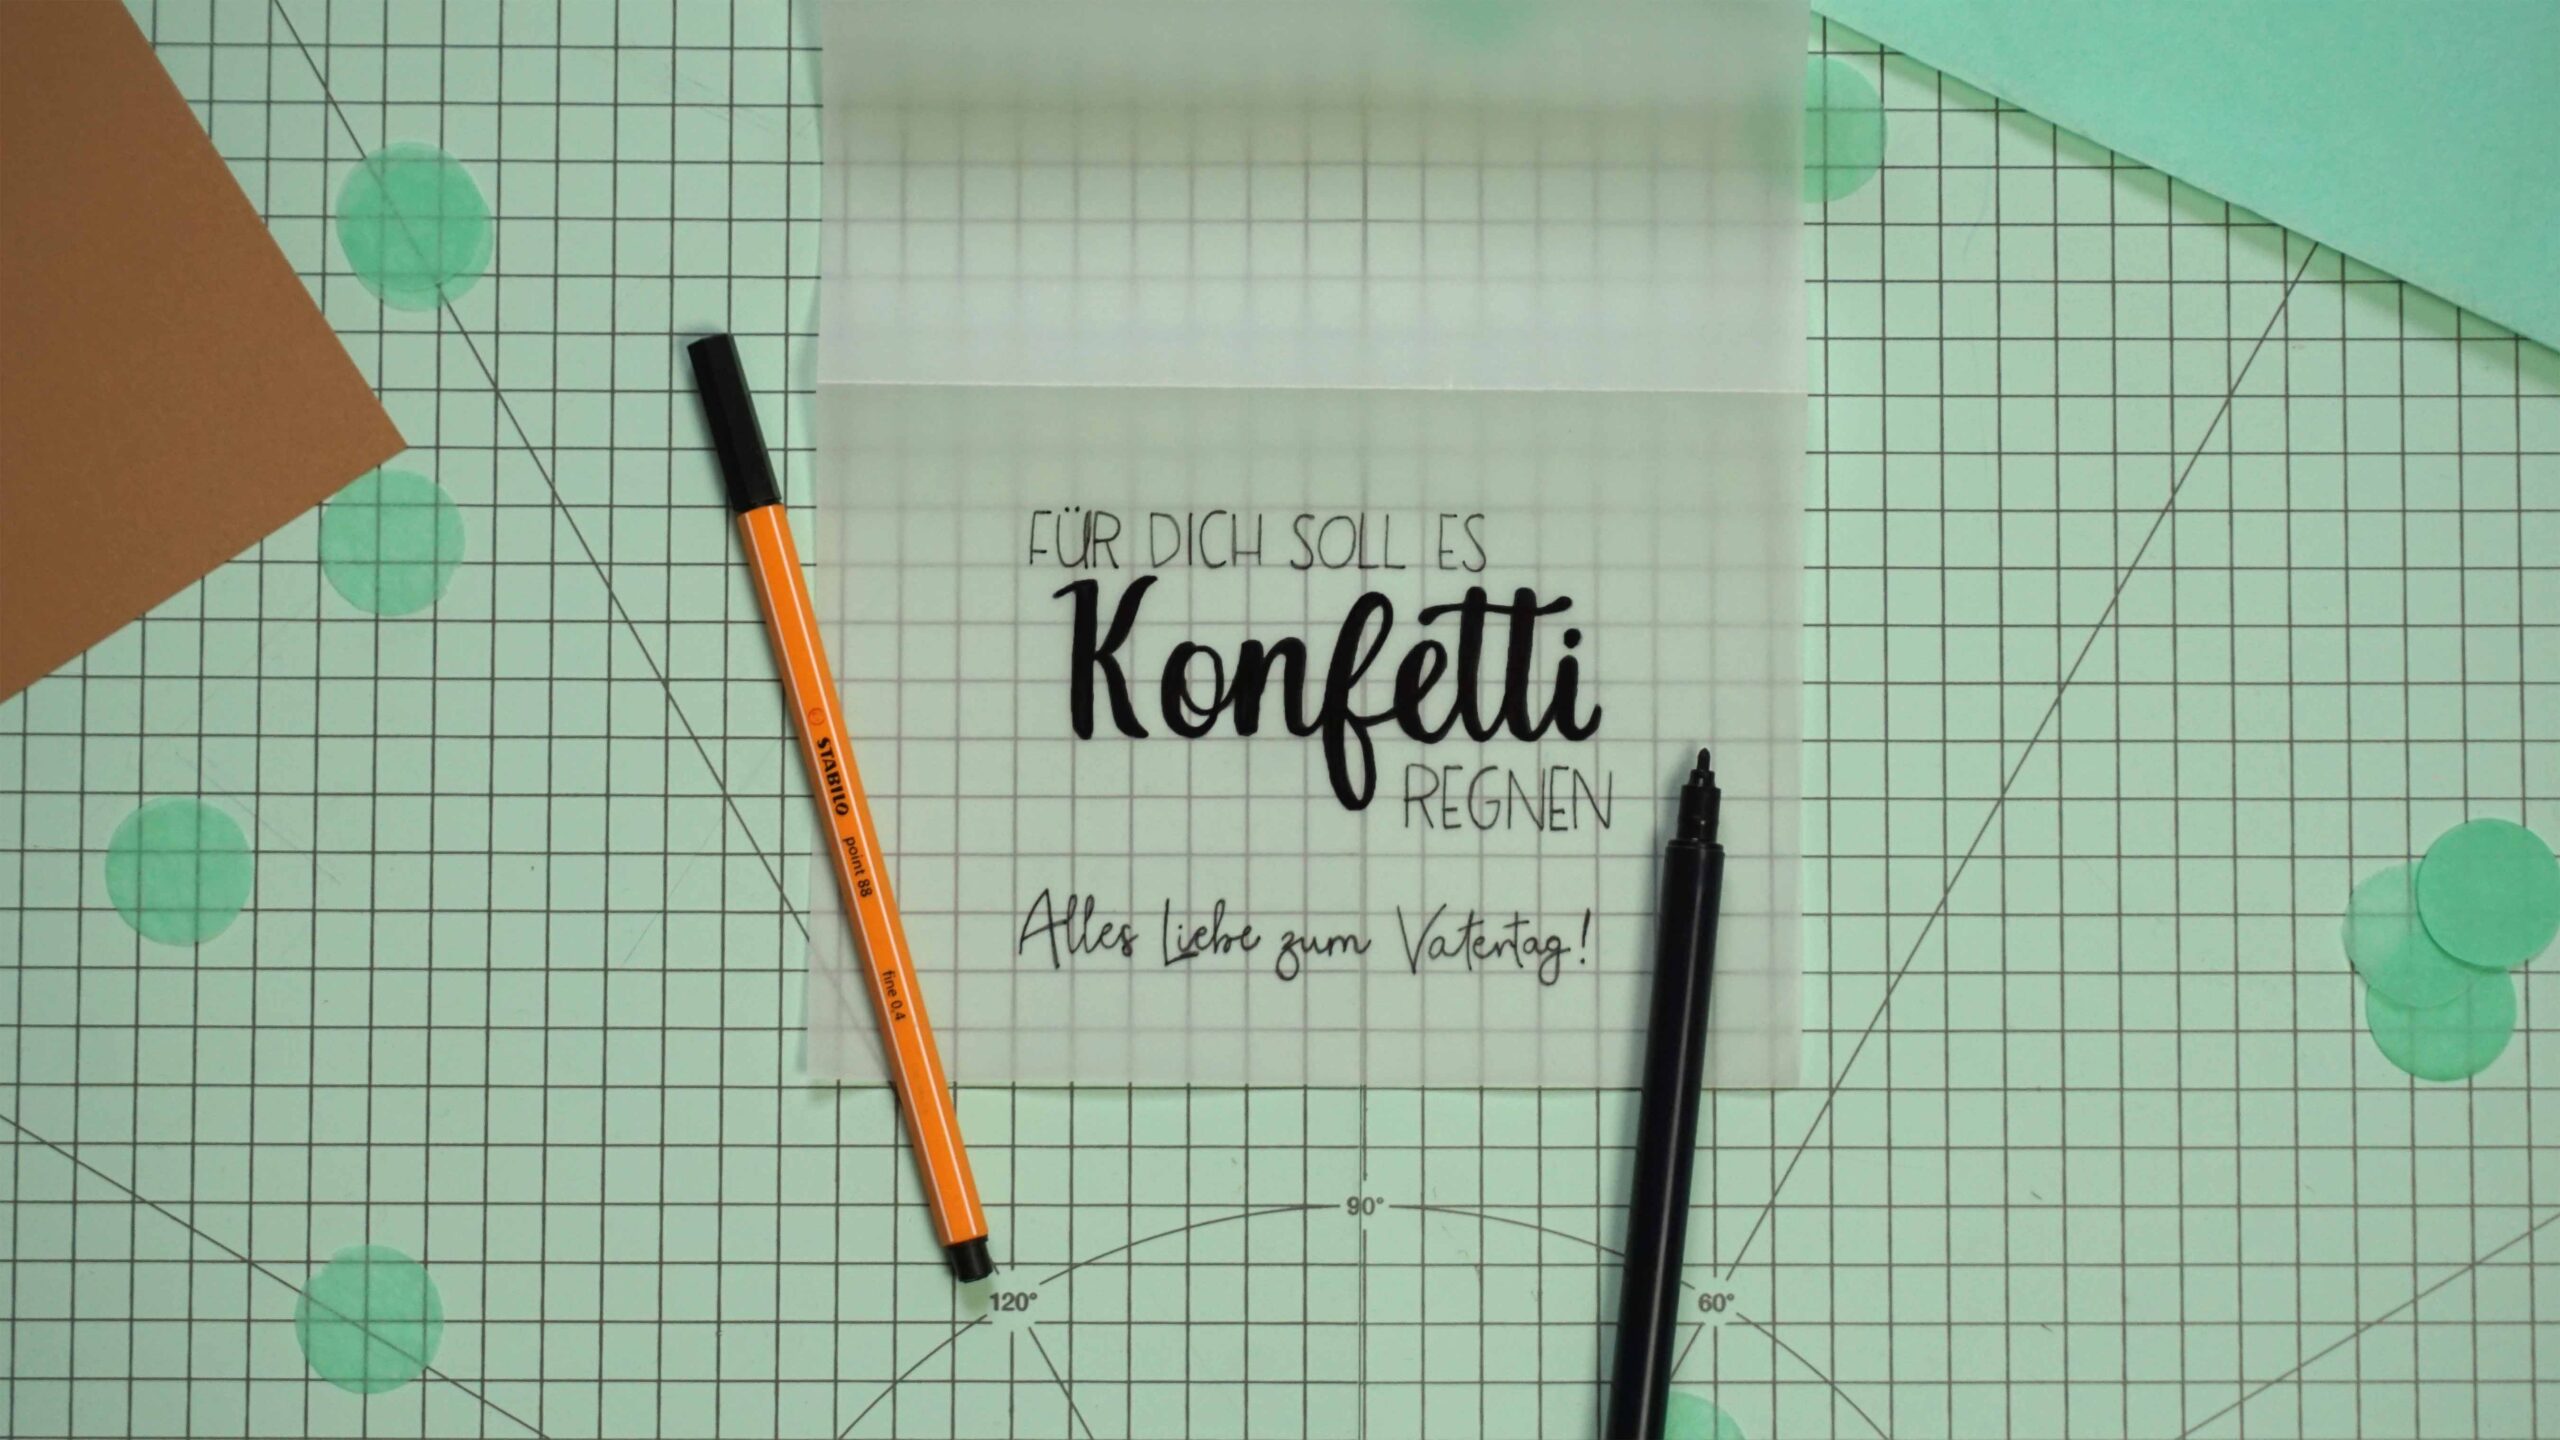 FÜR DICH SOLL ES
Konfetti
REGNEN
Alles Liebe zum Vatertag!
STABILO point 88 fine 0,4
90°
120°
60°